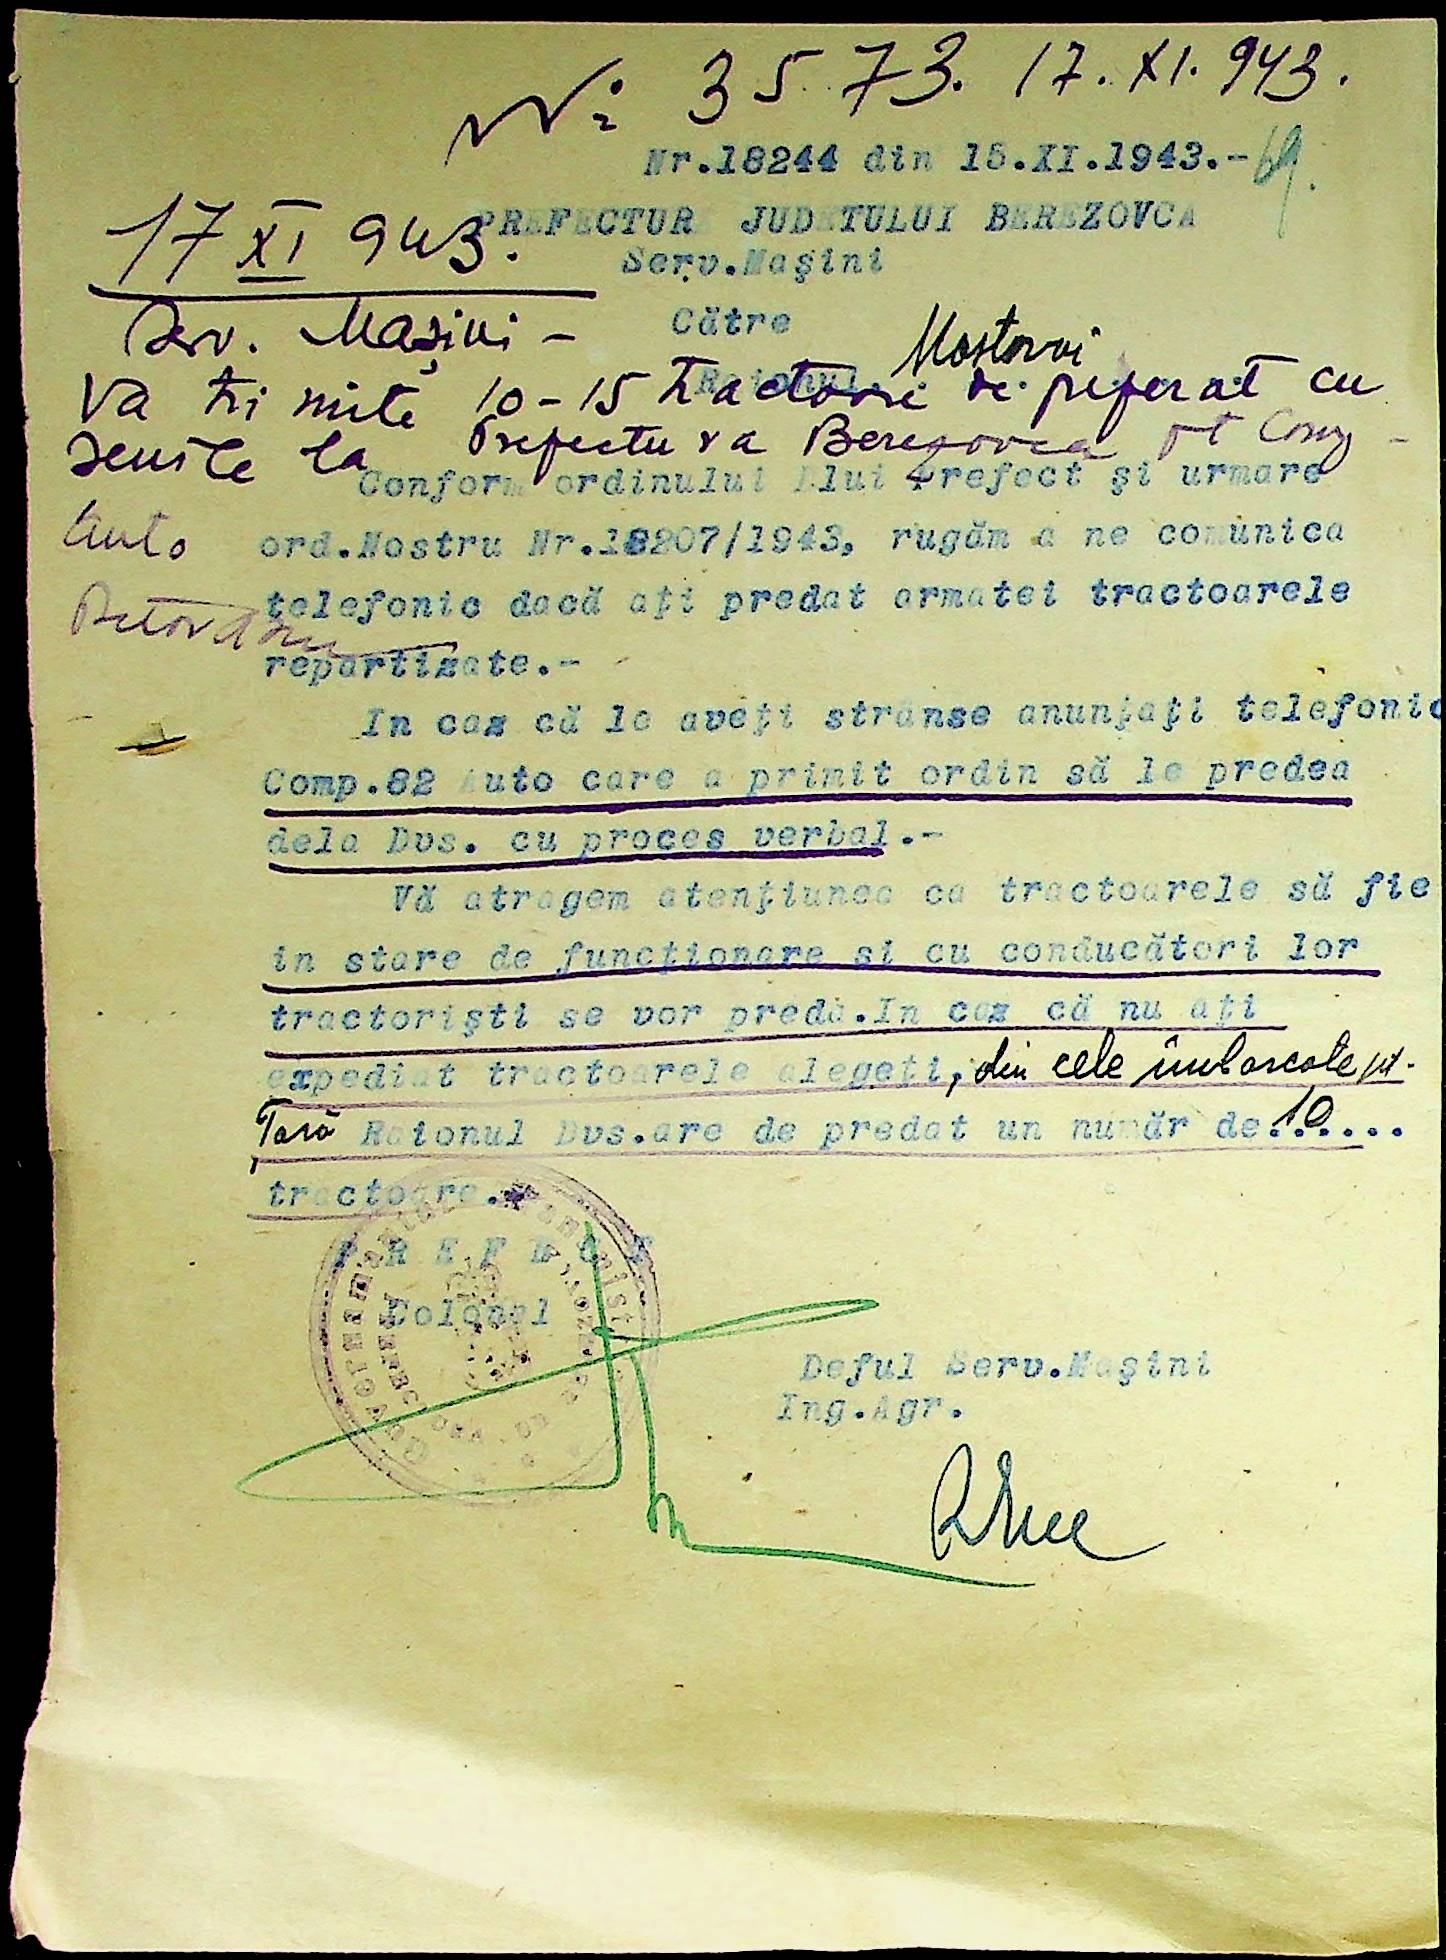 Nr. 3573. 17.XI.943.
Nr.18244 din 15.XI.1943.-
69.
PREFECTURA JUDETULUI BEREZOVCA
Serv.Maşini
17 XI 943.
Către
Raionul Mostovoi
Serv. Maşini -
Va trimite 10-15 tractoare de preferat cu
senile la Prefectura Berezovca pt Comp-
Auto
Conform ordinului Dlui Prefect şi urmare
ord.Nostru Nr.18207/1943, rugăm a ne comunica
telefonic dacă aţi predat armatei tractoarele
repartizate.-
In caz că le aveţi strânse anunţaţi telefonic
Comp.82 Auto care a primit ordin să le predea
dela Dvs. cu proces verbal.-
Vă atragem atenţiunea ca tractoarele să fie
in stare de funcţionare si cu conducători lor
tractorişti se vor preda.In caz că nu aţi
expediat tractoarele alegeţi, din cele îmbarcate pt.
Ţară Raionul Dvs.are de predat un număr de 10......
tractoare.
P R E F E C T
Colonel
Deful Serv.Maşini
Ing.Agr.